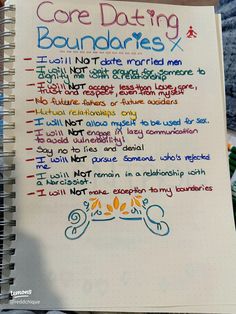 Core Dating
Boundaries x
- I will NOT date married men
- I will NOT wait around for someone to
dignify me with a relationship
- I will NOT accept less than love, care,
trust and respect, even from myself
- No future fathers or future avoiders
- Mutual relationships only
- I will NOT allow myself to be used for sex.
- I will NOT engage in lazy communication
to avoid vulnerability!
- Say no to lies and denial
- I will NOT pursue someone who's rejected
me
- I will NOT remain in a relationship with
a narcissist.
- I will NOT make exception to my boundaries
lemon8